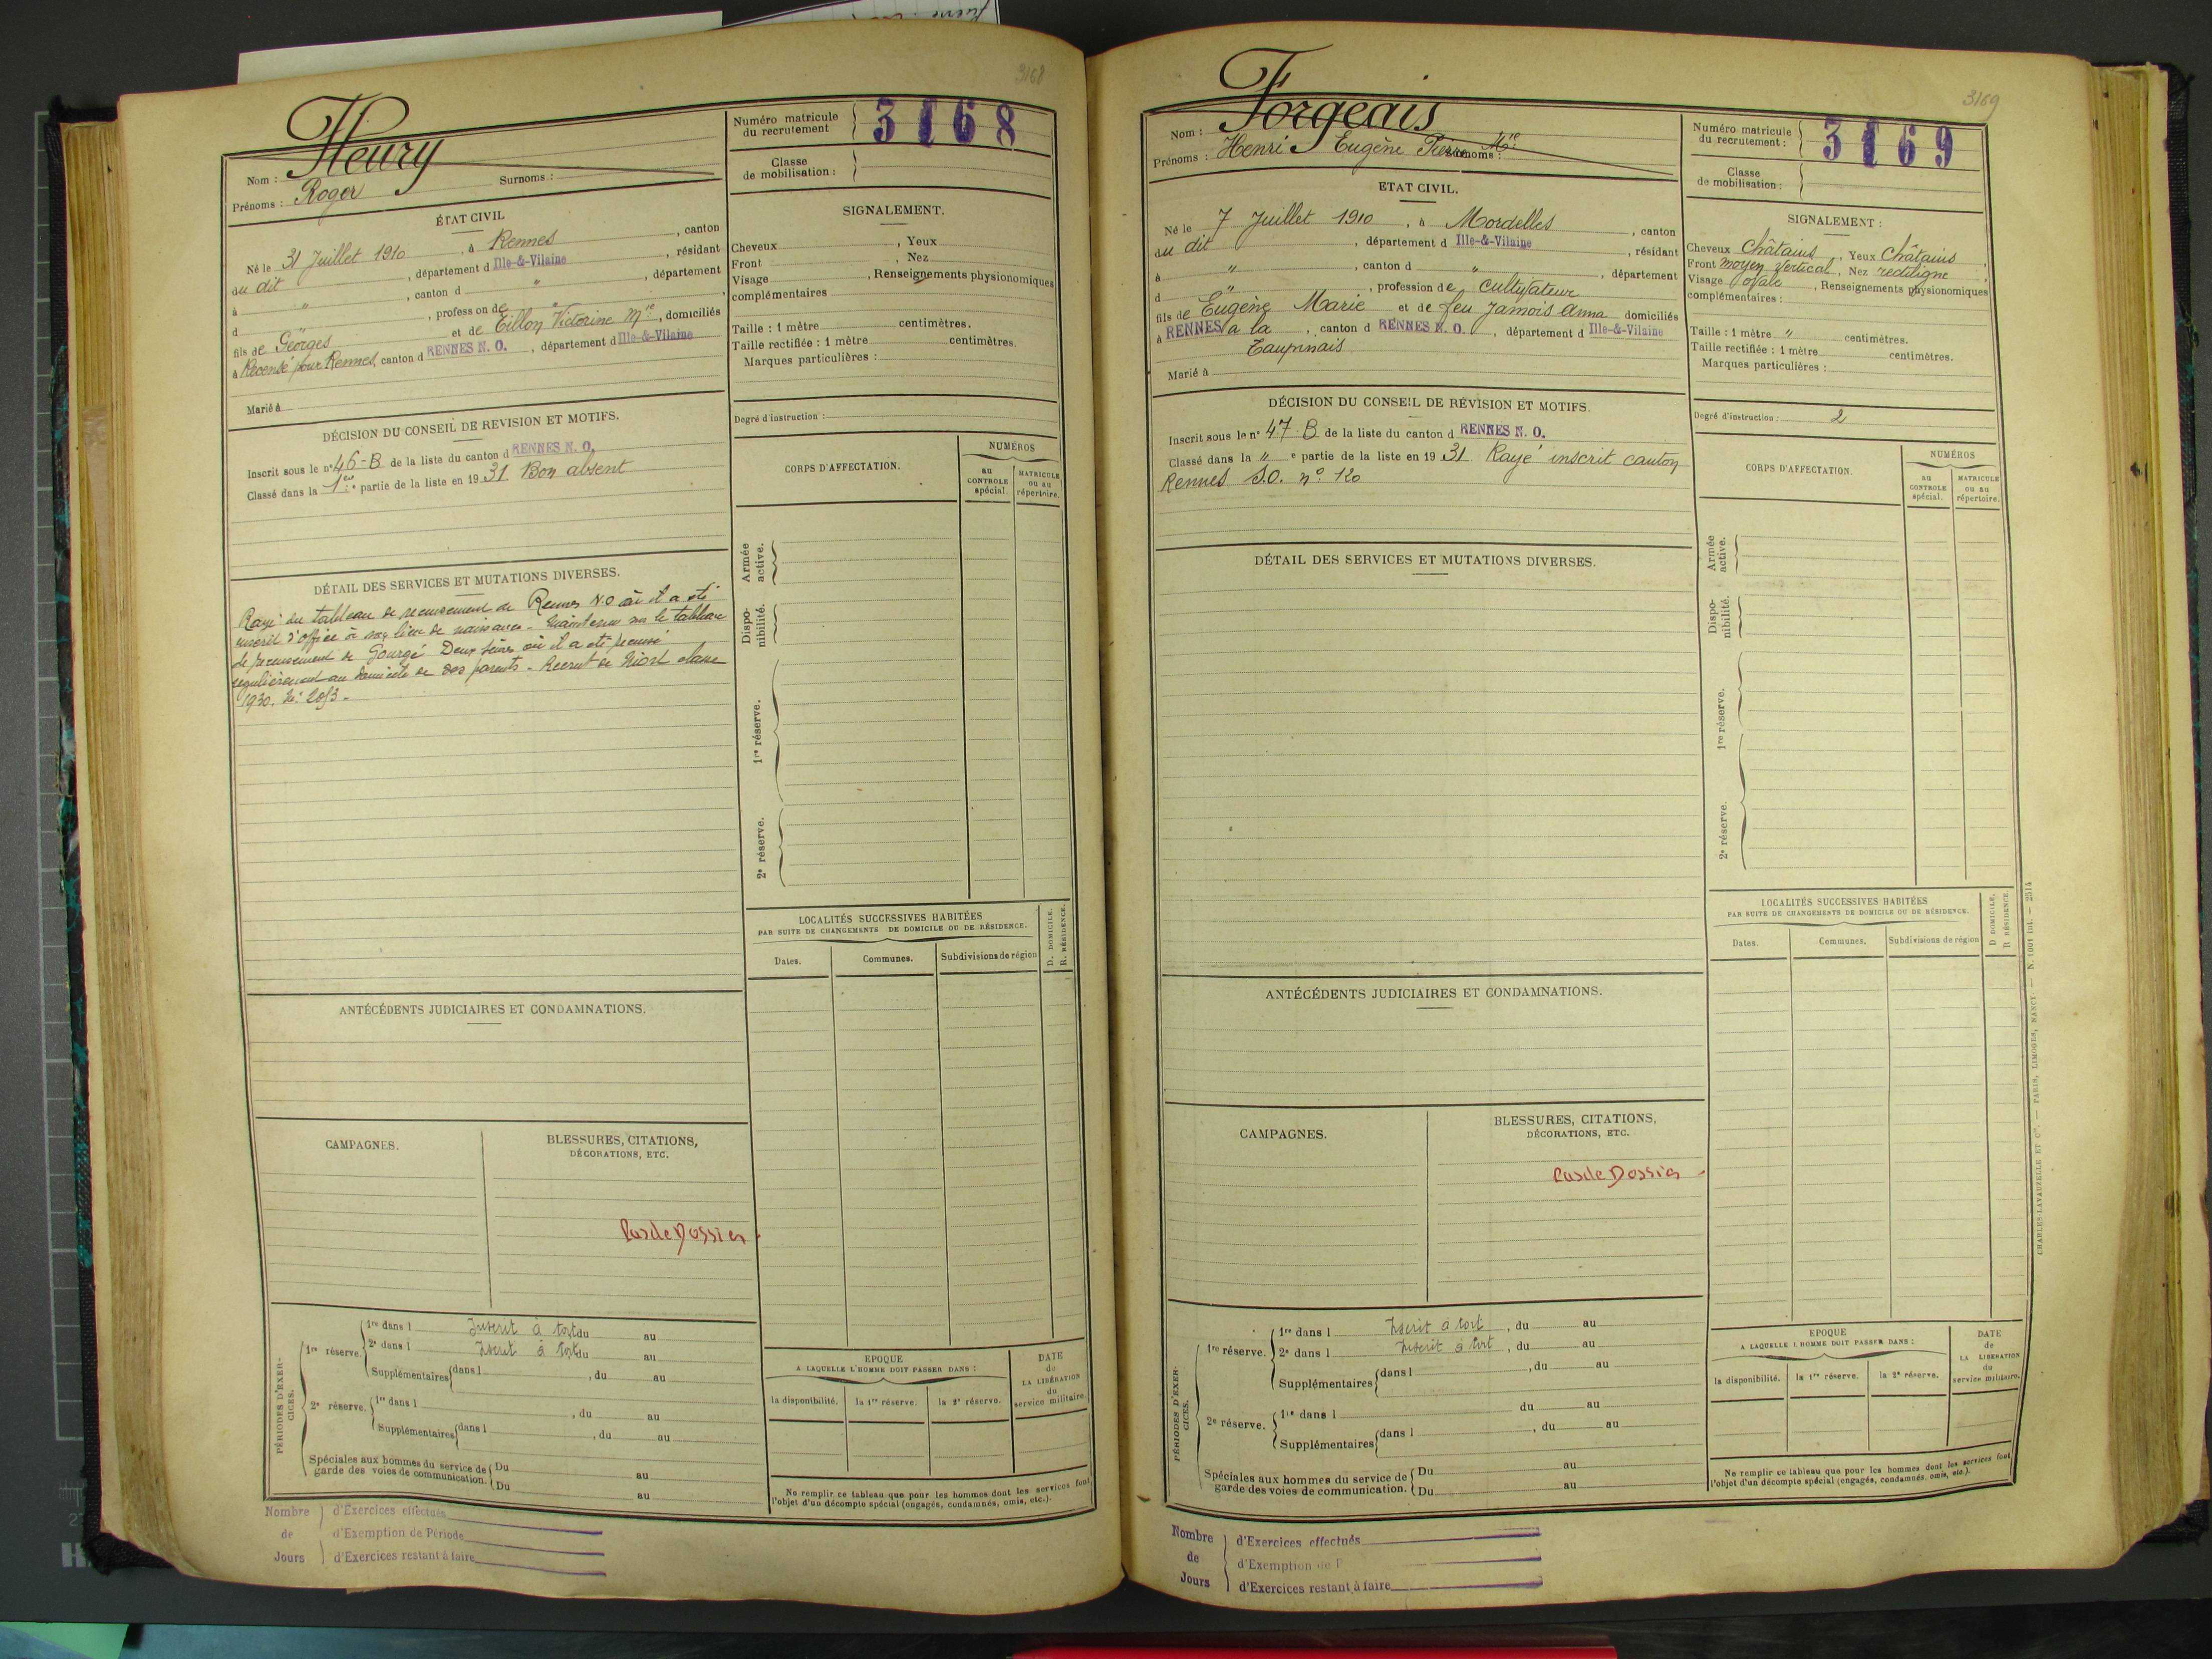 3168
Fleury
Nom :
Surnoms :
Prénoms : Roger
Numéro matricule du recrutement
3168
Classe de mobilisation :
ÉTAT CIVIL
Né le 31 Juillet 1910, à Rennes, canton
du dit, département d Ille-&-Vilaine, résidant
à ", canton d ", département
d ", profession de "
fils de Georges et de Tillon Victorine Mie, domiciliés
à Recensé pour Rennes, canton d RENNES N. O., département d Ille-&-Vilaine
Marié à
SIGNALEMENT.
Cheveux , Yeux
Front , Nez
Visage , Renseignements physionomiques
complémentaires
Taille : 1 mètre centimètres.
Taille rectifiée : 1 mètre centimètres.
Marques particulières :
Degré d'instruction :
DÉCISION DU CONSEIL DE REVISION ET MOTIFS.
Inscrit sous le n° 46-B de la liste du canton d RENNES N. O.
Classé dans la 1ere partie de la liste en 19 31. Bon absent
DÉTAIL DES SERVICES ET MUTATIONS DIVERSES.
Rayé du tableau de recensement de Rennes N.O où il a été
inscrit d'office à son lieu de naissance - Maintenu sur le tableau
de recensement de Gourgé Deux Sèvres où il a été recensé
régulièrement au domicile de ses parents - Recrut de Niort classe
1930. N°
CORPS D'AFFECTATION.
NUMÉROS
au CONTROLE spécial.
MATRICULE ou au répertoire.
Armée active.
Dispo-nibilité.
1re réserve.
2e réserve.
LOCALITÉS SUCCESSIVES HABITÉES
PAR SUITE DE CHANGEMENTS DE DOMICILE OU DE RÉSIDENCE.
D. DOMICILE.
R. RÉSIDENCE.
Dates.
Communes.
Subdivisions de région
ANTÉCÉDENTS JUDICIAIRES ET CONDAMNATIONS.
CAMPAGNES.
BLESSURES, CITATIONS,
DÉCORATIONS, ETC.
Pas de Dossier
PÉRIODES D'EXER-CICES.
1re réserve.
1re dans l Inscrit à tort du au
2e dans l Inscrit à tort du au
Supplémentaires dans l , du au
2e réserve.
1re dans l , du au
Supplémentaires dans l , du au
Spéciales aux hommes du service de garde des voies de communication.
Du au
Du au
EPOQUE
A LAQUELLE L'HOMME DOIT PASSER DANS :
la disponibilité.
la 1re réserve.
la 2e réserve.
DATE de LA LIBÉRATION du service militaire.
Ne remplir ce tableau que pour les hommes dont les services font
l'objet d'un décompte spécial (engagés, condamnés, omis, etc.).
Nombre de Jours
d'Exercices effectués
d'Exemption de Période
d'Exercices restant à faire
3169
Forgeais
Nom :
Prénoms : Henri Eugène Pierre Mie
Surnoms :
Numéro matricule du recrutement :
3169
Classe de mobilisation :
ETAT CIVIL.
Né le 7 Juillet 1910, à Mordelles, canton
du dit, département d Ille-&-Vilaine, résidant
à ", canton d ", département
d ", profession de cultivateur
fils de Eugène Marie et de feu Jamois Anna domiciliés
à RENNES à la, canton d RENNES N. O., département d Ille-&-Vilaine
Taupinais
Marié à
SIGNALEMENT :
Cheveux Châtains, Yeux Châtains
Front moyen vertical, Nez rectiligne
Visage ovale, Renseignements physionomiques
complémentaires :
Taille : 1 mètre " centimètres.
Taille rectifiée : 1 mètre centimètres.
Marques particulières :
Degré d'instruction : 2
DÉCISION DU CONSEIL DE RÉVISION ET MOTIFS.
Inscrit sous le n° 47-B de la liste du canton d RENNES N. O.
Classé dans la " e partie de la liste en 19 31 Rayé inscrit canton
Rennes S.O. n° 120
DÉTAIL DES SERVICES ET MUTATIONS DIVERSES.
CORPS D'AFFECTATION.
NUMÉROS
au CONTROLE spécial.
MATRICULE ou au répertoire.
Armée active.
Dispo-nibilité.
1re réserve.
2e réserve.
LOCALITÉS SUCCESSIVES HABITÉES
PAR SUITE DE CHANGEMENTS DE DOMICILE OU DE RÉSIDENCE.
D DOMICILE.
R RÉSIDENCE.
Dates.
Communes.
Subdivisions de région
ANTÉCÉDENTS JUDICIAIRES ET CONDAMNATIONS.
CAMPAGNES.
BLESSURES, CITATIONS,
DÉCORATIONS, ETC.
Pas de Dossier -
PÉRIODES D'EXER-CICES.
1re réserve.
1re dans l Inscrit à tort, du au
2e dans l Inscrit à tort, du au
Supplémentaires dans l , du au
2e réserve.
1re dans l du au
Supplémentaires dans l , du au
Spéciales aux hommes du service de garde des voies de communication.
Du au
Du au
EPOQUE
A LAQUELLE L'HOMME DOIT PASSER DANS :
la disponibilité.
la 1re réserve.
la 2e réserve.
DATE de LA LIBÉRATION du service militaire.
Ne remplir ce tableau que pour les hommes dont les services font
l'objet d'un décompte spécial (engagés, condamnés, omis, etc.).
Nombre de Jours
d'Exercices effectués
d'Exemption de P
d'Exercices restant à faire
CHARLES-LAVAUZELLE ET Cie. — PARIS, LIMOGES, NANCY. — N. 1001 int. — 2514